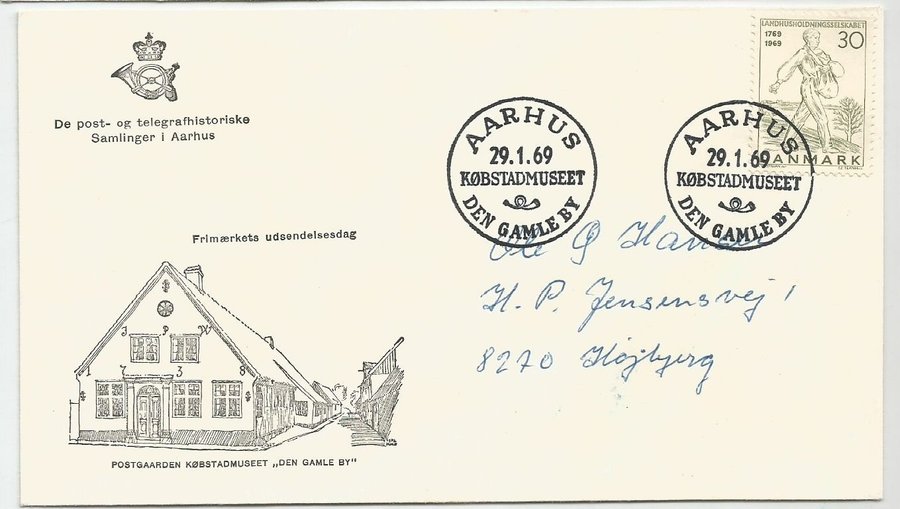 De post- og telegrafhistoriske
Samlinger i Aarhus
LANDHUSHOLDNINGSSELSKABET
1769
1969
30
DANMARK
AARHUS
29.1.69
KØBSTADMUSEET
DEN GAMLE BY
AARHUS
29.1.69
KØBSTADMUSEET
DEN GAMLE BY
Ole G Hansen
H. P. Jensensvej 1
8270 Højbjerg
Frimærkets udsendelsesdag
J P W
7 3 8
POSTGAARDEN KØBSTADMUSEET „DEN GAMLE BY"